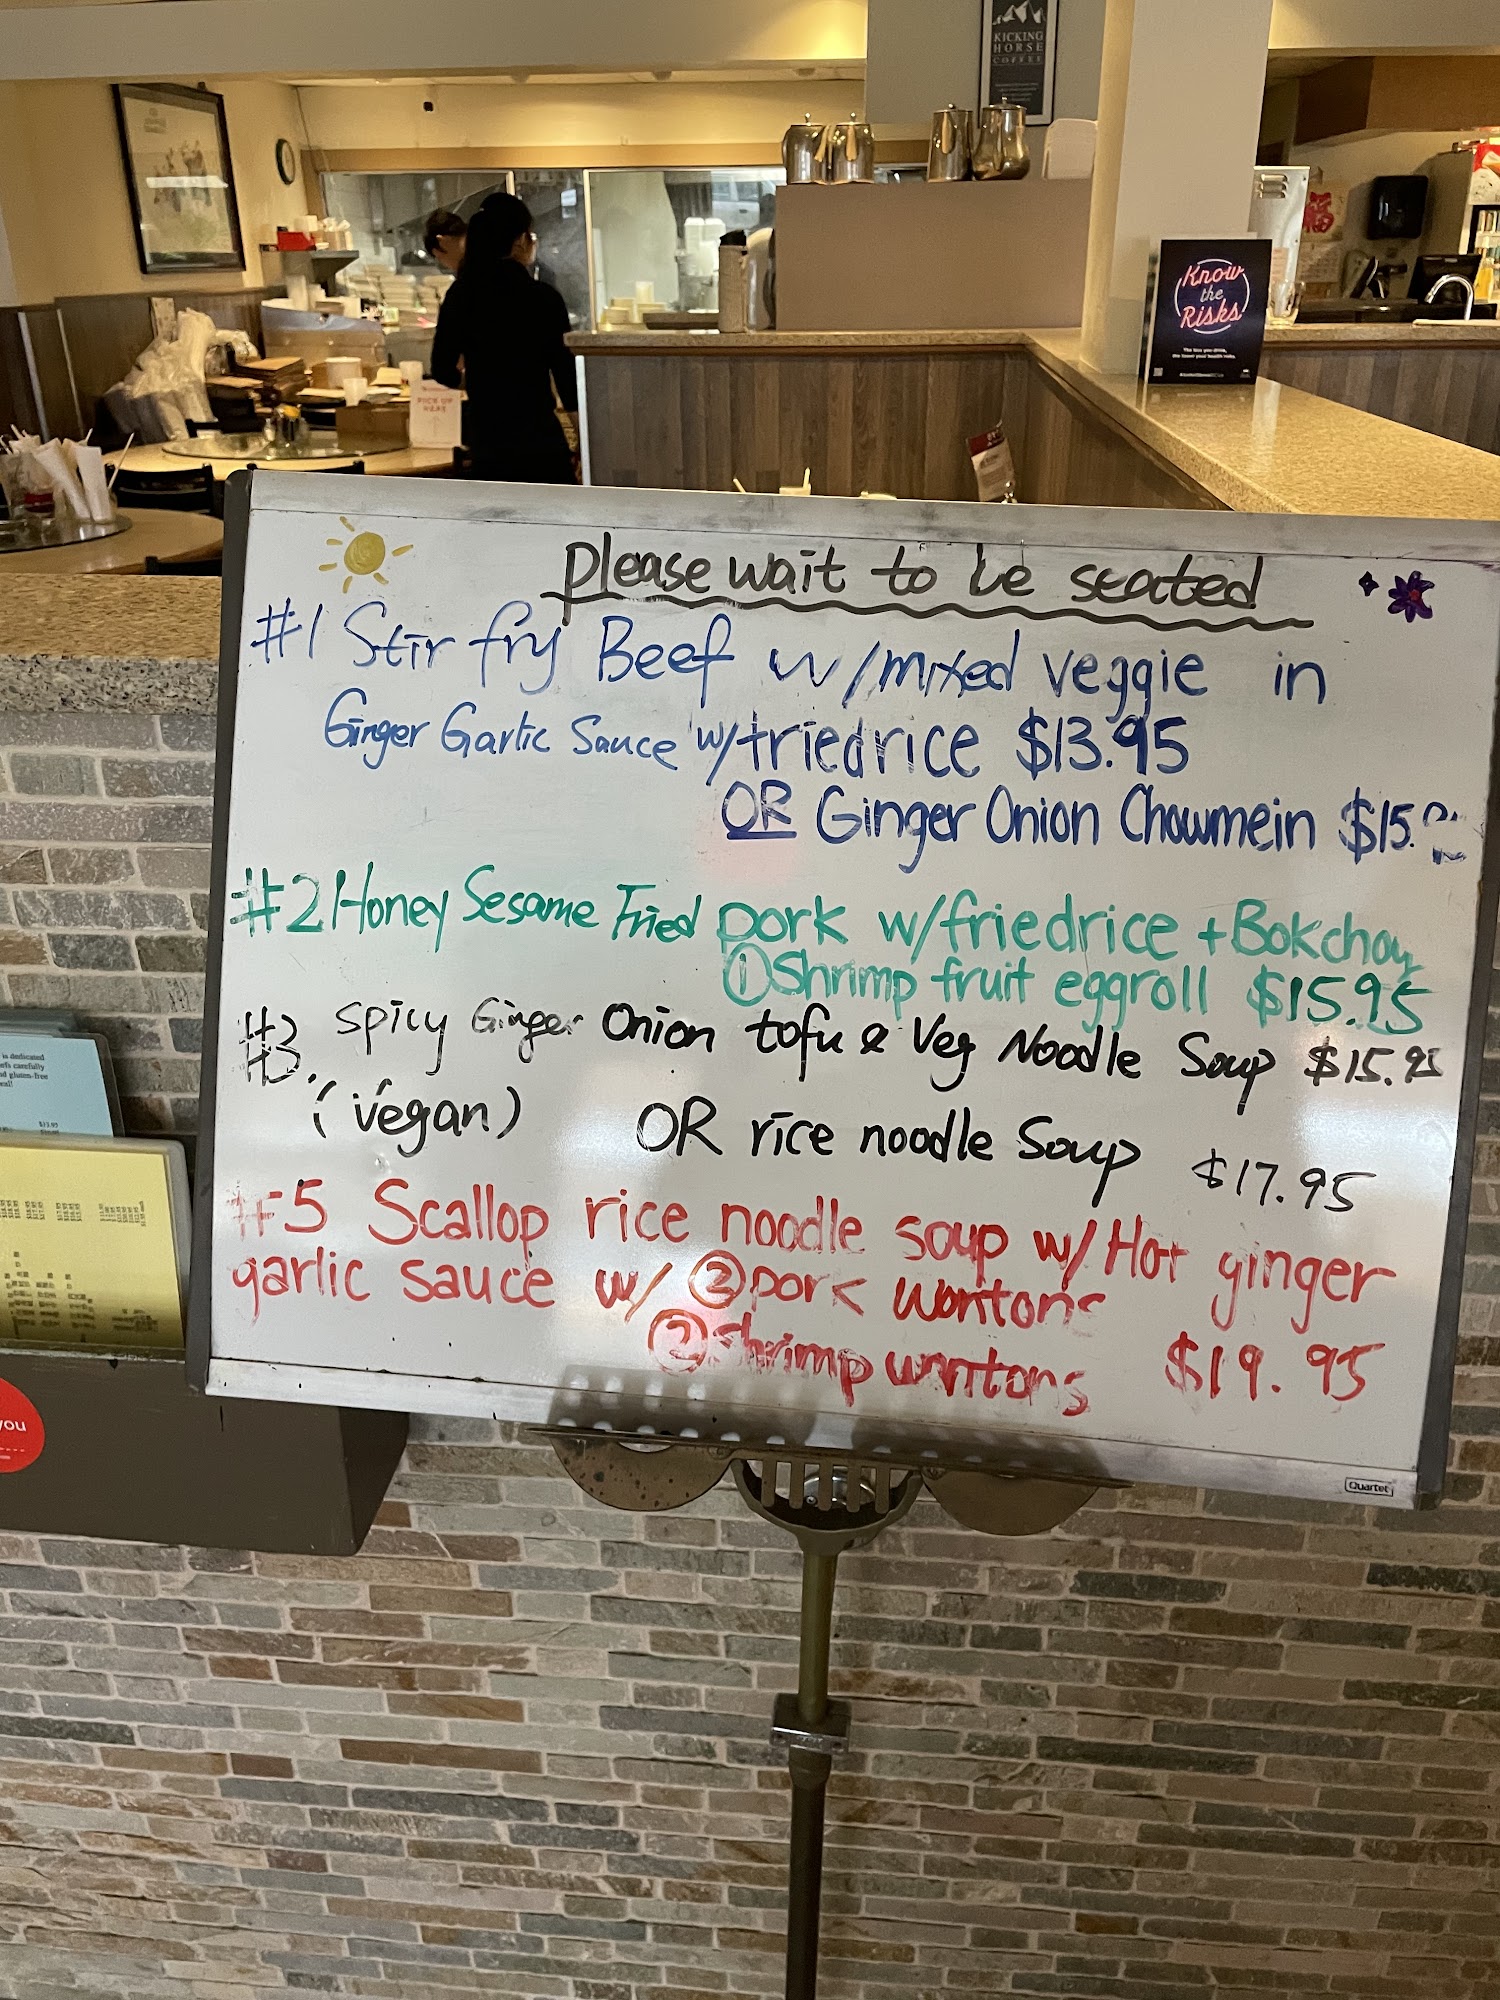 KICKING
HORSE
COFFEE
Know
the
Risks
PICK UP
HERE
please wait to be seated
#1 Stir fry Beef w/mixed veggie in
Ginger Garlic Sauce w/friedrice $13.95
OR Ginger Onion Chowmein $15.
#2 Honey Sesame Fried pork w/friedrice + Bokchoy
① Shrimp fruit eggroll $15.95
#3. Spicy Ginger Onion tofu & Veg Noodle Soup $15.95
(vegan) OR rice noodle Soup $17.95
#5 Scallop rice noodle soup w/Hot ginger
garlic sauce w/ ② pork wontons
② Shrimp wontons $19.95
Quartet
is dedicated
efs carefully
nd gluten-free
$13.95
you
福